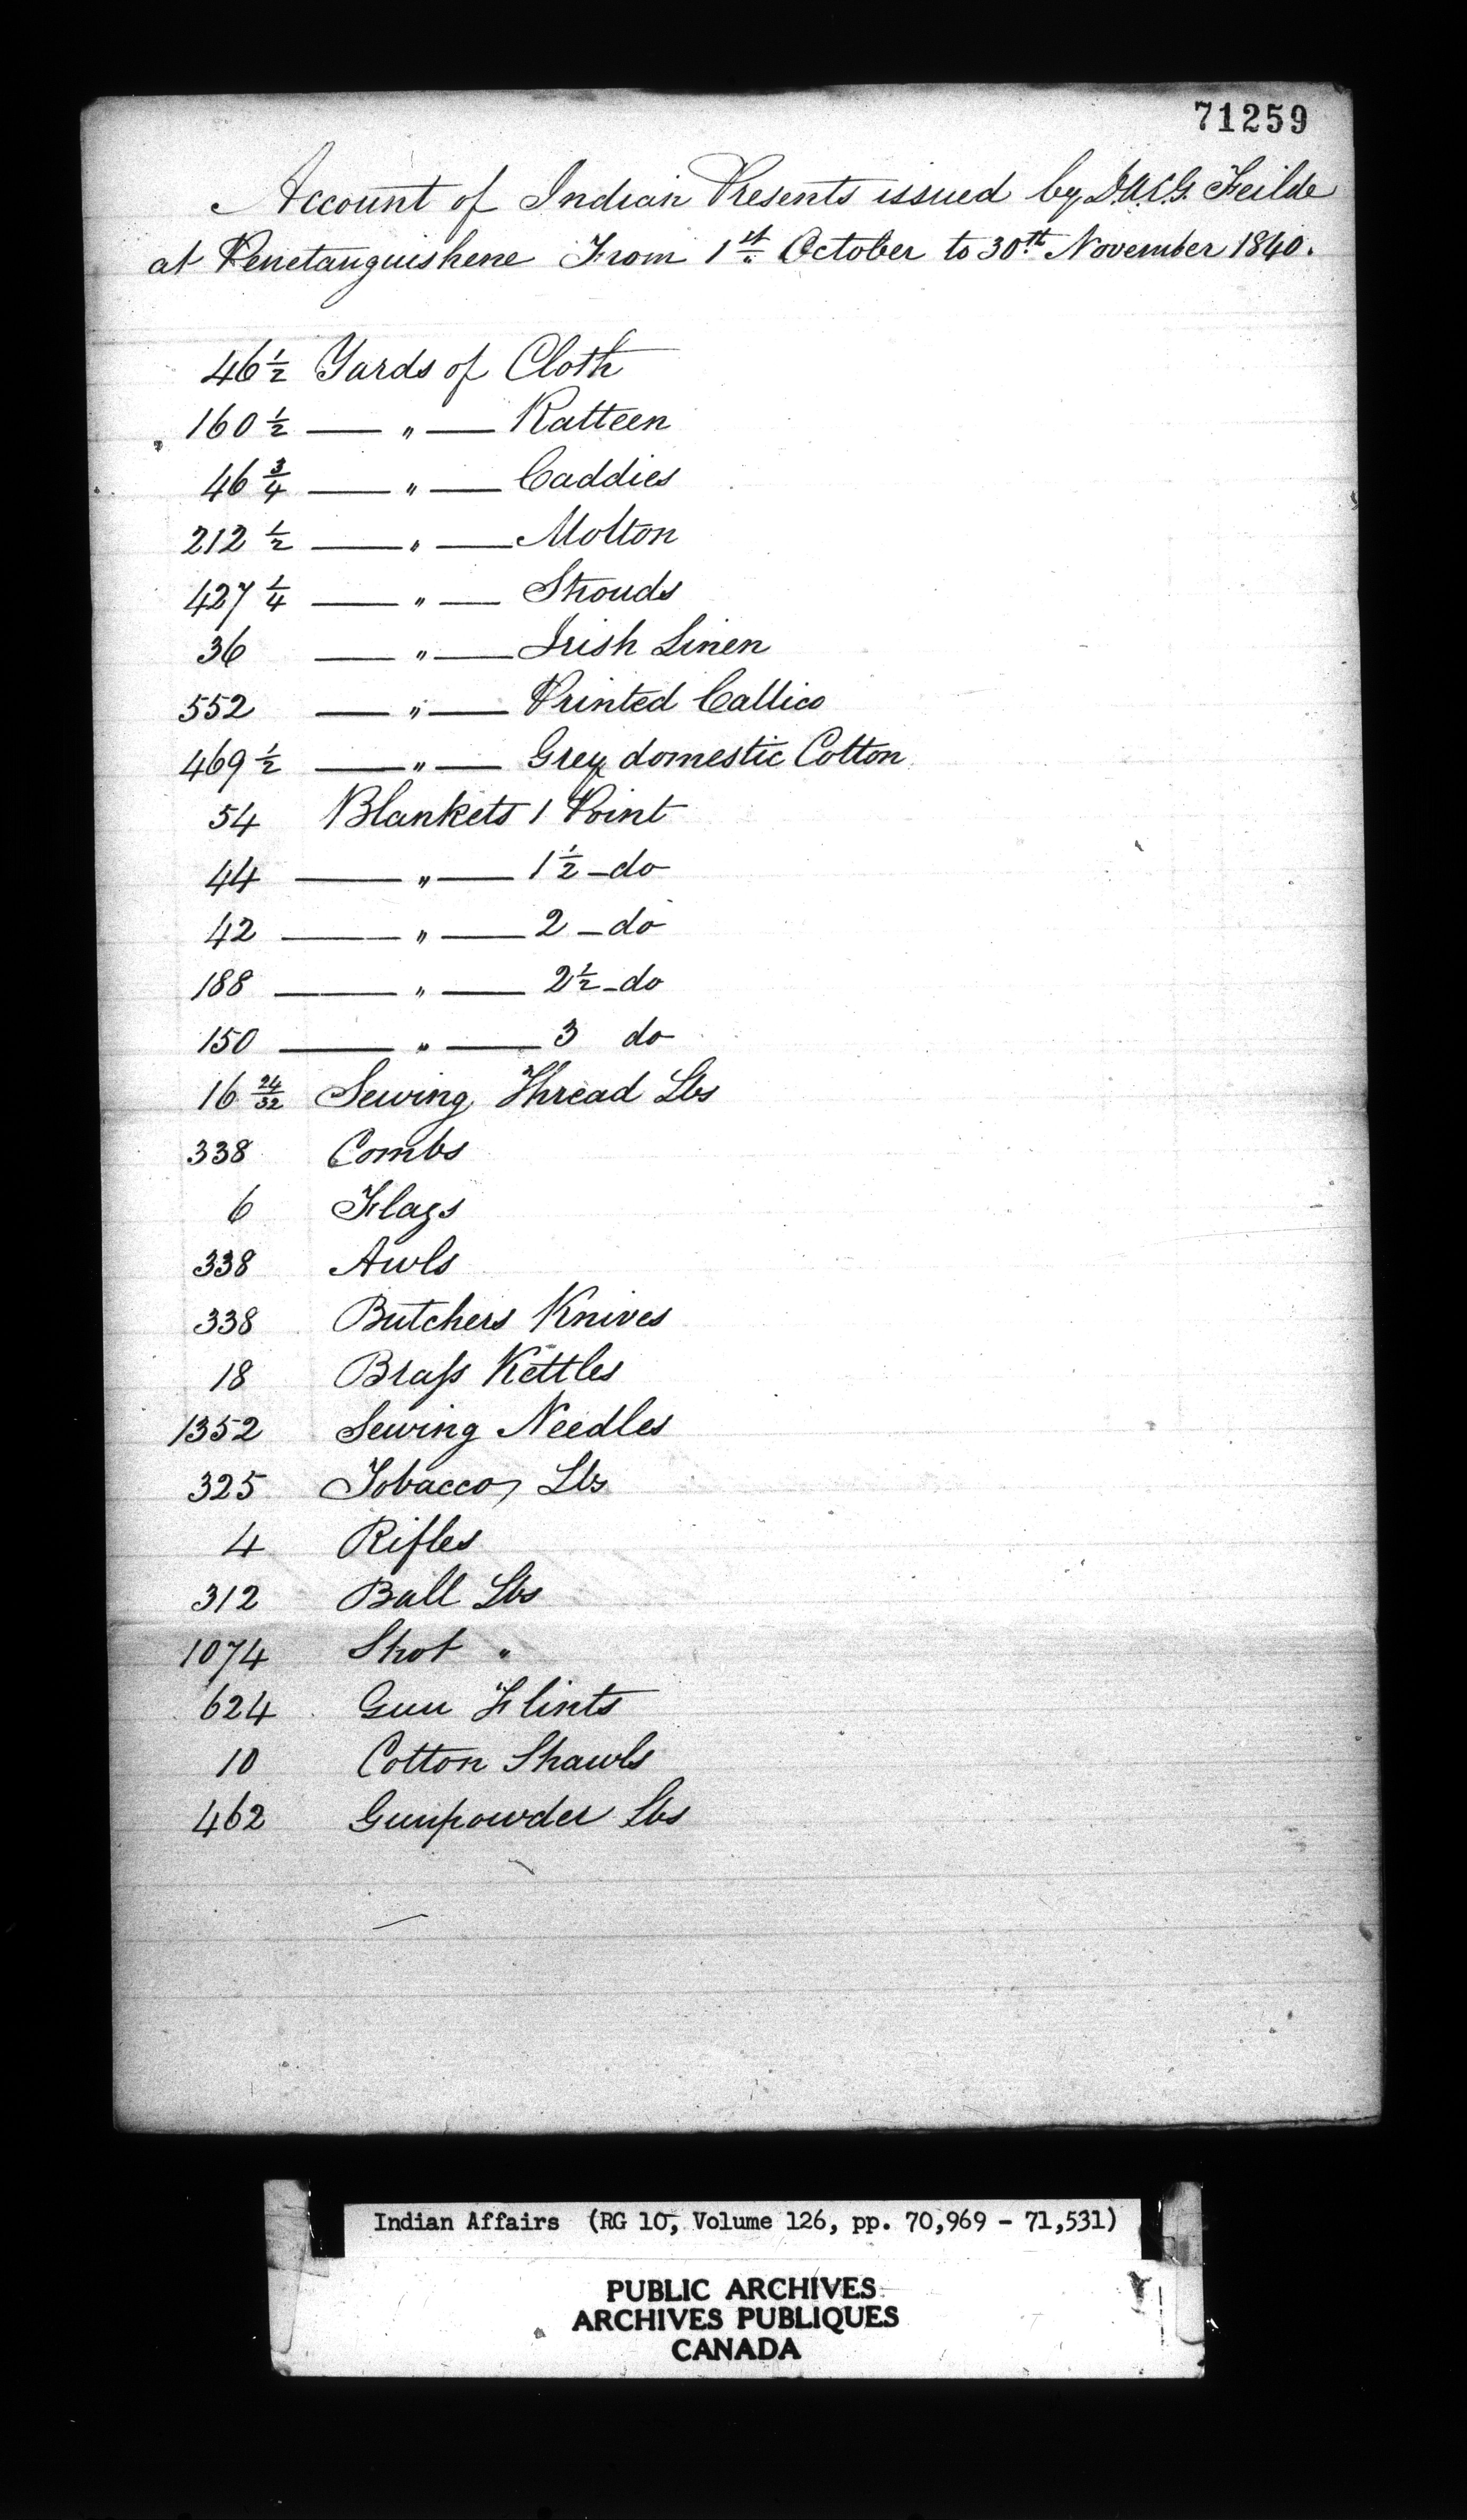 71259
Account of Indian Presents issued by D.A.C.G. Feilde
at Penetanguishene From 1st October to 30th November 1840.
46 1/2 Yards of Cloth
160 1/2 — " — Ratteen
46 3/4 — " — Caddies
212 1/2 — " — Molton
427 1/4 — " — Strouds
36 — " — Irish Linen
552 — " — Printed Callico
469 1/2 — " — Grey domestic Cotton
54 Blankets 1 Point
44 — " — 1 1/2 - do
42 — " — 2 - do
188 — " — 2 1/2 - do
150 — " — 3 do
16 24/32 Sewing Thread Lbs
338 Combs
6 Flags
338 Awls
338 Butchers Knives
18 Brass Kettles
1352 Sewing Needles
325 Tobacco, Lbs
4 Rifles
312 Ball Lbs
1074 Shot "
624 Gun Flints
10 Cotton Shawls
462 Gunpowder Lbs
Indian Affairs (RG 10, Volume 126, pp. 70,969 - 71,531)
PUBLIC ARCHIVES
ARCHIVES PUBLIQUES
CANADA